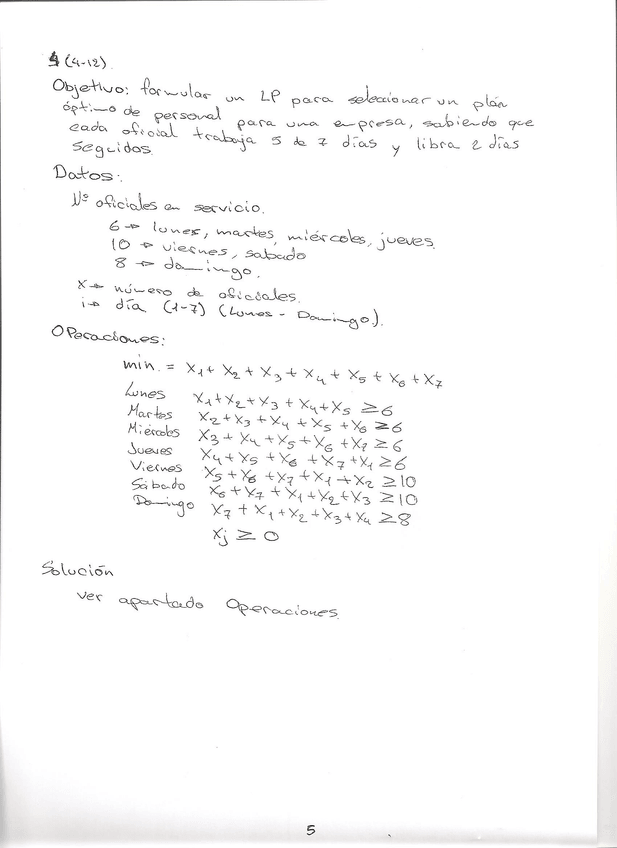 4 (4-12)
Objetivo: formular un LP para seleccionar un plán
óptimo de personal para una empresa, sabiendo que
cada oficial trabaja 5 de 7 días y libra 2 días
seguidos.
Datos:
Nº oficiales en servicio.
6 → lunes, martes, miércoles, jueves.
10 → viernes, sabado
8 → domingo.
X → número de oficiales.
i → día (1-7) (Lunes - Domingo).
Operaciones:
min. = X1 + X2 + X3 + X4 + X5 + X6 + X7
Lunes X1+X2+X3+X4+X5 ≥6
Martes X2+X3+X4+X5+X6 ≥6
Miércoles X3+X4+X5+X6+X7 ≥6
Jueves X4+X5+X6+X7+X1 ≥6
Viernes X5+X6+X7+X1+X2 ≥10
Sábado X6+X7+X1+X2+X3 ≥10
Domingo X7+X1+X2+X3+X4 ≥8
Xj ≥ 0
Solución
Ver apartado Operaciones.
5